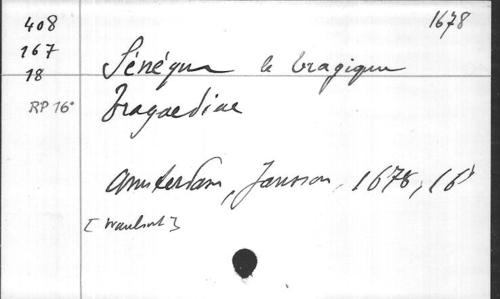 408
1678
167
18
Sénéque le tragique
RP 16°
Tragaediae
Amsterdam, Jansson, 1678, 16°